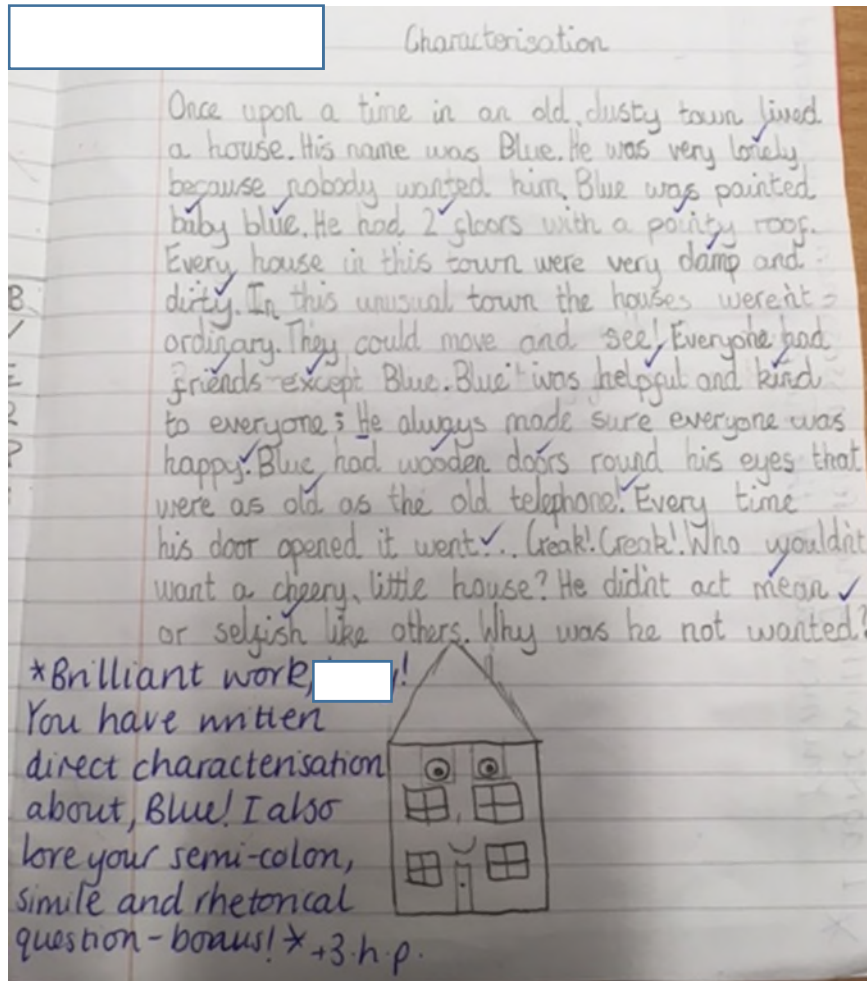 Characterisation
Once upon a time in an old, dusty town lived
a house. His name was Blue. He was very lonely
because nobody wanted him. Blue was painted
baby blue. He had 2 floors with a pointy roof.
Every house in this town were very damp and
dirty. In this unusual town the houses weren't
ordinary. They could move and see! Everyone had
friends except Blue. Blue was helpful and kind
to everyone; He always made sure everyone was
happy. Blue had wooden doors round his eyes that
were as old as the old telephone! Every time
his door opened it went... Creak! Creak! Who wouldn't
want a cheery, little house? He didn't act mean
or selfish like others. Why was he not wanted?
*Brilliant work, !
You have written
direct characterisation
about, Blue! I also
love your semi-colon,
simile and rhetorical
question - bonus! * +3.h.p.
B